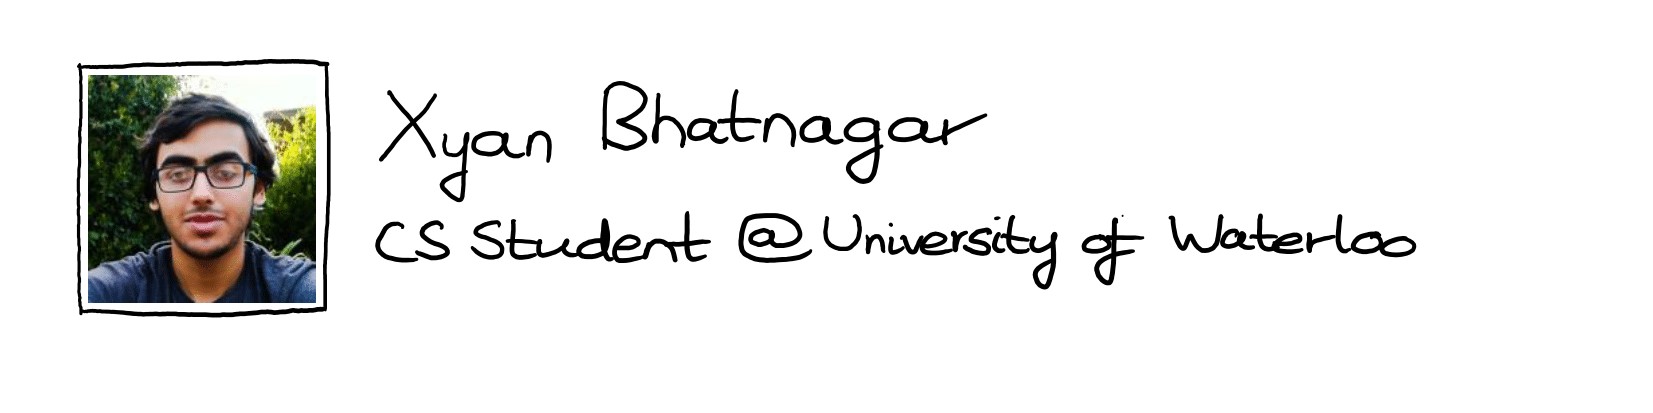 Xyan Bhatnagar
CS Student @ University of Waterloo